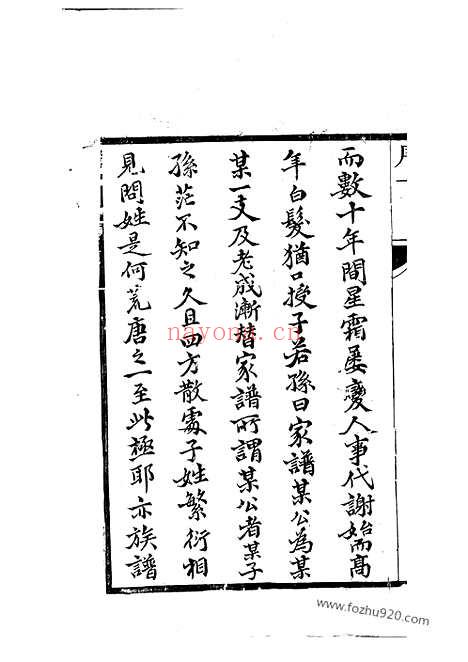 而數十年間星霜屡變人事代謝始而髙
年白髮猶口授子若孫曰家譜某公為某
某一支及老成漸替家譜所謂某公者某子
孫茫不知之久且四方散處子姓繁衍相
見問姓是何荒唐之一至此極耶亦族譜
nayona.cn
www.fozhu920.com